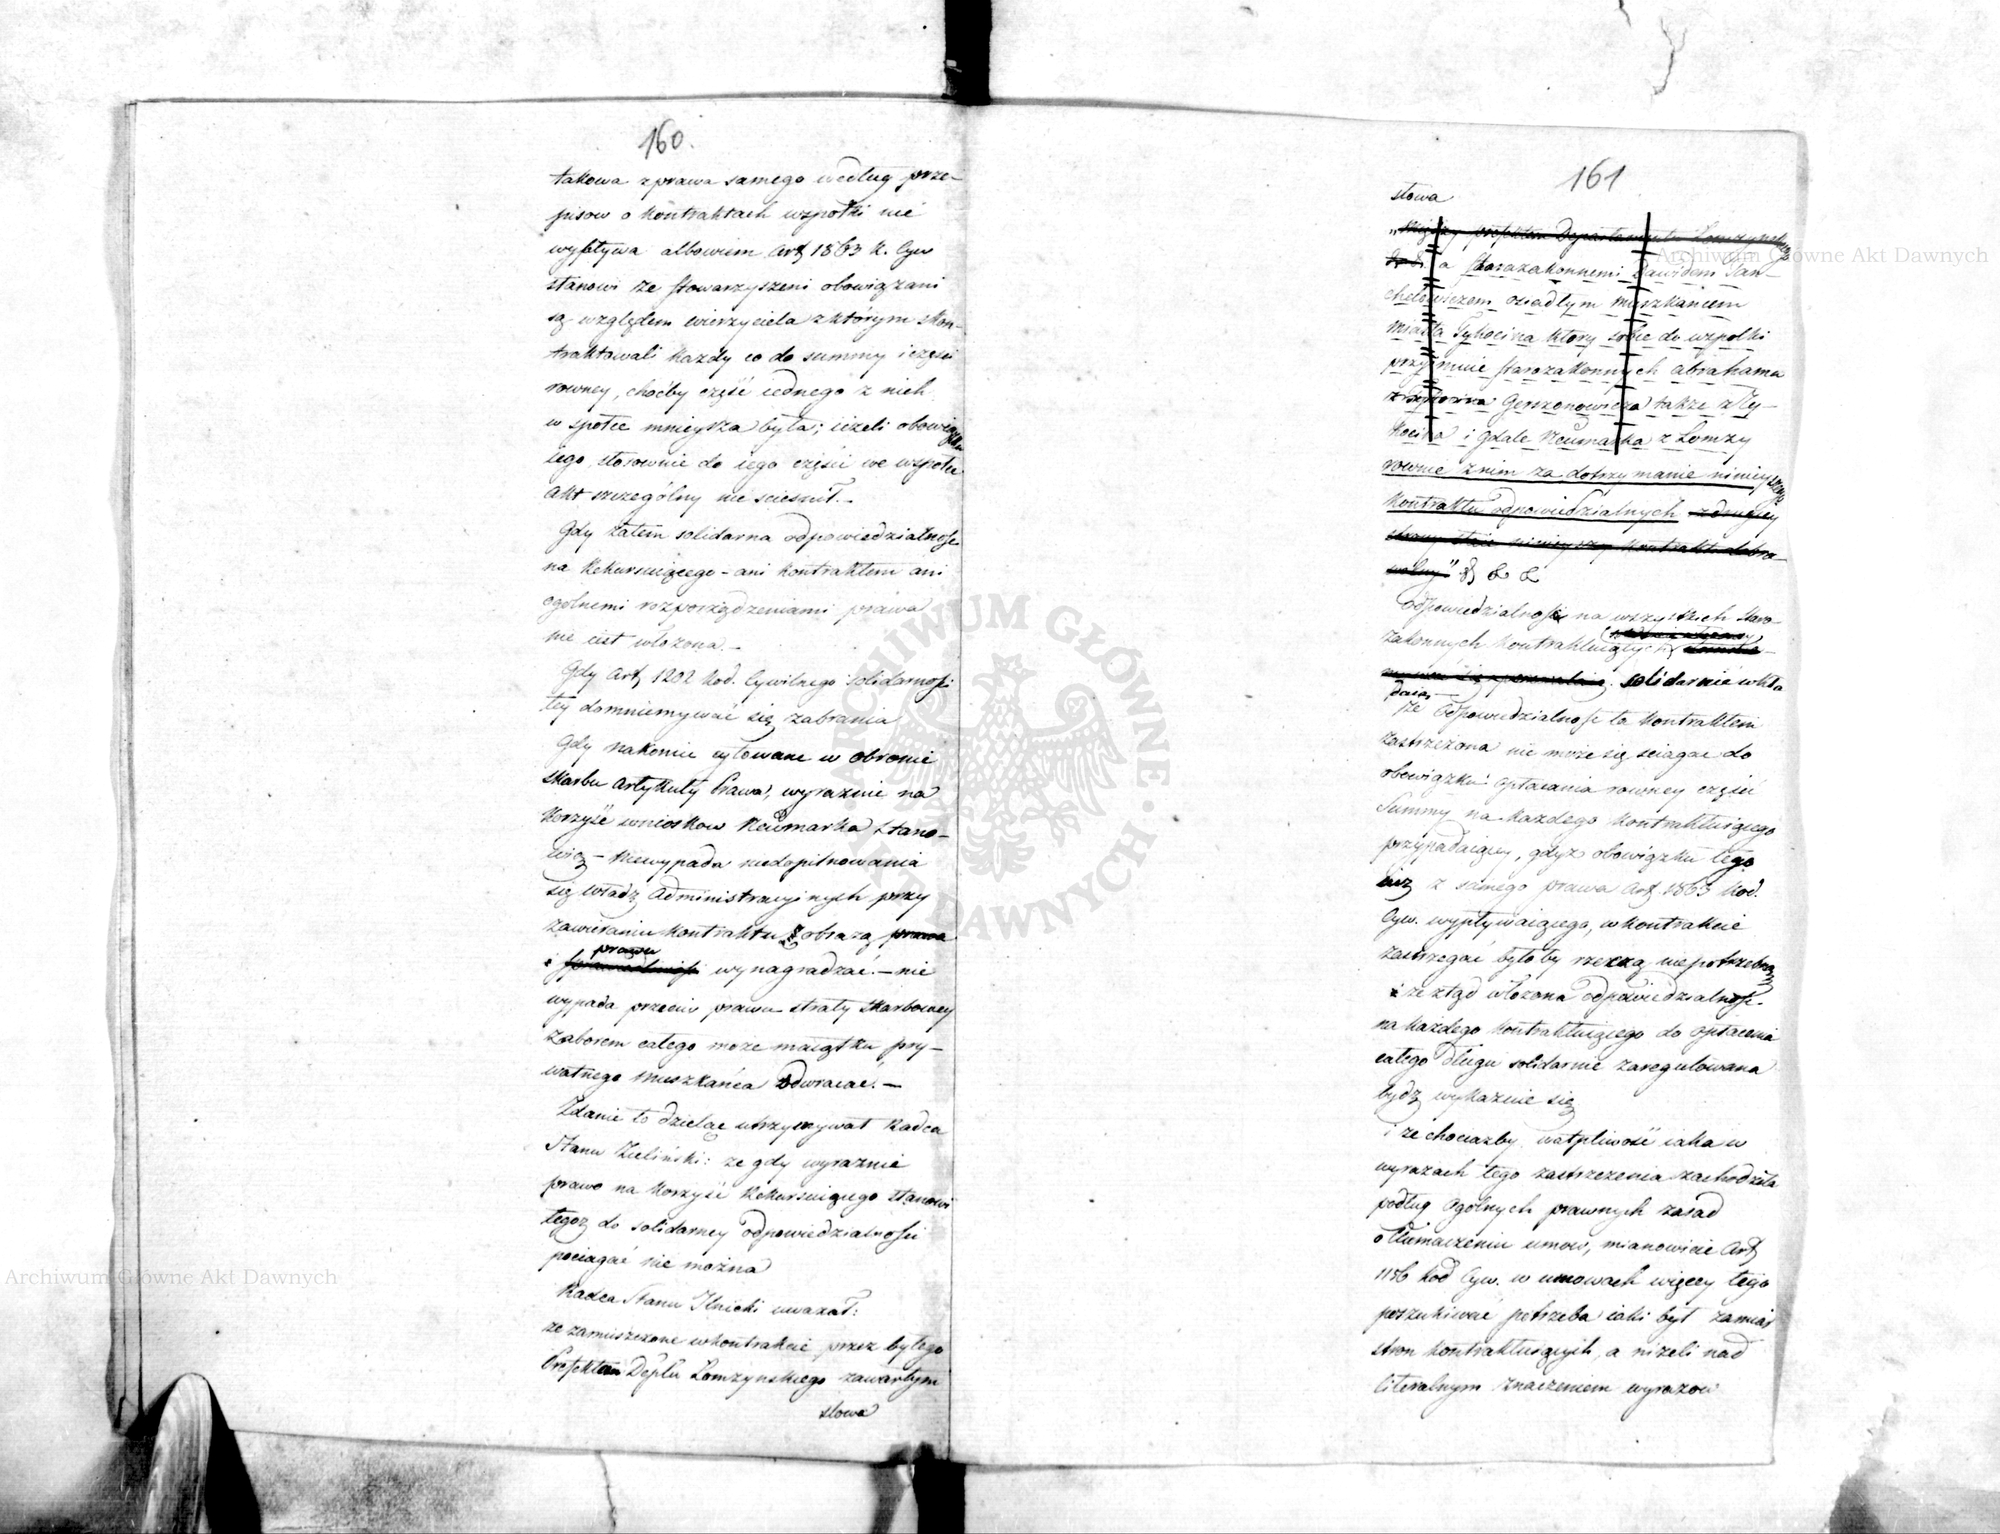 160.
takowa z prawa samego według prze-
pisow o kontraktach wzpołki nie
wypływa albowiem Art 1863 K. Cyw
stanowi że stowarzyszeni obowiązani
są względem wierzyciela z którym skon-
traktowali każdy co do summy i części
rowney, choćby część iednego z nich
w społce mnieysza była; ieżeli obowiązku
iego stosownie do iego części we wzpołce
Akt szczególny nie ścieśnił. –
Gdy zatem solidarna odpowiedzialność
na Rekursuiącego – ani kontraktem ani
ogolnemi rozporządzeniami prawa
nie iest włożona. –
Gdy Art 1202 Kod. Cywilnego solidarności
tey domniemywać się zabrania
Gdy nakoniec cytowane w obronie
skarbu Artykuły Prawa, wyraznie na
korzyść wnioskow Neumarka stano-
wią – Niewypada niedopilnowania
się władz Administracyinych przy
zawieraniu kontraktu z obrazą prawa
prawa
i sprawiedliwości wynagradzać. – nie
wypada przeciw prawu straty skarbowey
zaborem całego może maiątku pry-
watnego mieszkańca odwracać. –
Zdanie to dzieląc utrzymywał Radca
Stanu Zieliński: że gdy wyraznie
prawo na korzyść Rekursuiącego stanowi
tegoż do solidarney odpowiedzialności
pociągać nie można
Radca Stanu Ilnicki uważał:
że zamieszczone w kontrakcie przez byłego
Prefekta Depttu Łomzynskiego zawartym
słowa
161
słowa
„Między prefektem Departamentu Łomzynskiego
a Starozakonnemi Dawidem Jan-
chelowiczem osiadłym mieszkańcem
miasta Tykocina który sobie do wzpołki
przyimuie starozakonnych Abrahama
Gerszonowicza także z Ty-
kocina i Gdale Neumarka z Łomzy
rownie z nim za dotrzymanie ninieyszego
kontraktu odpowiedzialnych z drugiey
strony stał ninieyszy kontrakt dobro-
wolny”
Odpowiedzialność na wszystkich staro-
zakonnych kontraktuiących
solidarnie wkła
daią –
że Odpowiedzialność ta kontraktem
zastrzeżona nie może się sciągac do
obowiązku opłacania rowney części
Summy na każdego kontraktuiącego
przypadaiącey, gdyż obowiązku tego
iuż z samego prawa Art 1863 Kod.
Cyw. wypływaiącego, w kontrakcie
zastrzegać byłoby rzeczą niepotrzebną
i że ztąd włożona odpowiedzialność.
na każdego kontraktuiącego do opłacenia
całego długu solidarnie zaregulowana
bydź wykazuie się
i że chociażby wątpliwość iaka w
wyrazach tego zastrzeżenia zachodziła
podług ogólnych prawnych zasad
o tłumaczeniu umow, mianowicie Art
1156 Kod Cyw. w umowach więcey tego
poszukiwać potrzeba iaki był zamiar
stron kontraktuiących, a niżeli nad
literalnym znaczeniem wyrazow